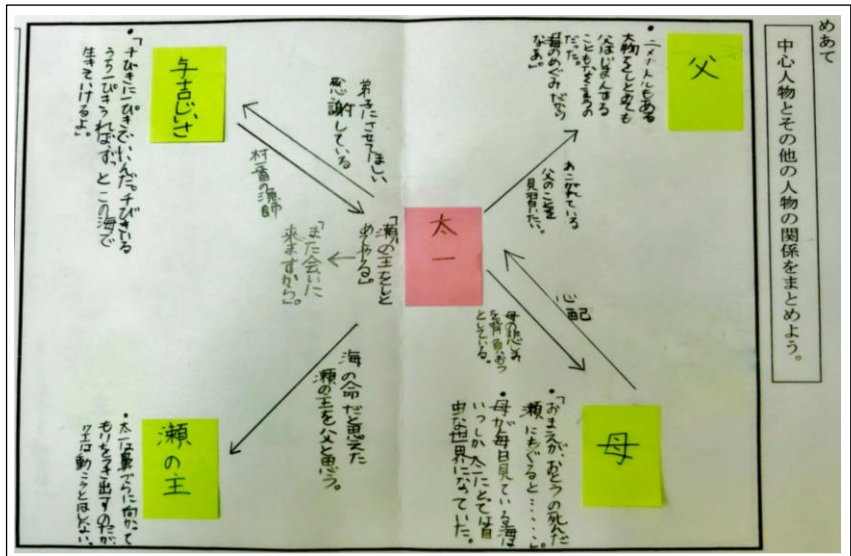 めあて
中心人物とその他の人物の関係をまとめよう。
父
・二メートルもある
大物をしとめても
父はじまんする
こともなく
海のめぐみだから
なあ。」
あこがれている
父のことを
見習いたい。
太一
心配
母の悲しみ
を背負おう
としている。
母
・「おまえが、おとうの死んだ
瀬にもぐると……。」
母が毎日見ている海は
いつしか太一にとっては自
由な世界になっていた。
与吉じいさ
・「千びきに一ぴきでいいんだ。千びきいる
うち一ぴきつれば、ずっとこの海で
生きていけるよ。」
弟子にさせてほしい
感謝している
村一番の漁師
「瀬の主をしと
めてやる」
「また会いに
来ますから」。
海の命だと思えた
瀬の主を父と思う。
瀬の主
・太一は鼻づらに向かって
もりをつき出すのだが、
クエは動こうとはしない。